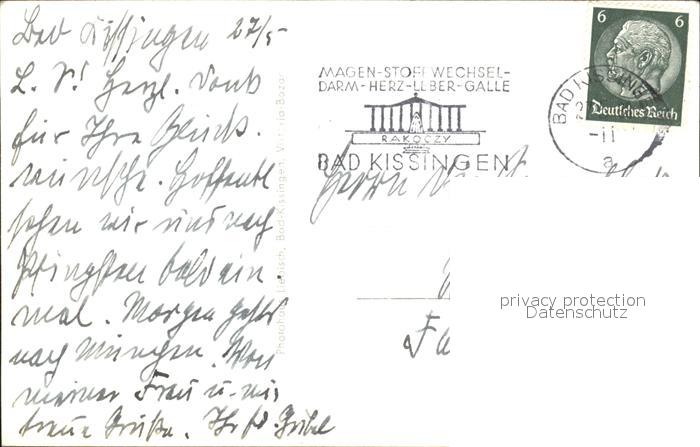 Bad Kissingen 27/5
L. V! Herzl. Dank
für Ihre Glück-
wünsche. Hoffentl
sehen wir uns nach
Pfingsten bald ein-
mal. Morgen gehts
nach München. Von
meiner Frau u. mir
treue Grüße. Ihr
Photohaus Liebisch, Bad-Kissingen, Viktoria-Bazar
MAGEN-STOFFWECHSEL-
DARM-HERZ-LEBER-GALLE
RAKOCZY
BAD KISSINGEN
BAD KISSINGEN
-11
a
6 6
Deutsches Reich
Herrn
privacy protection
Datenschutz